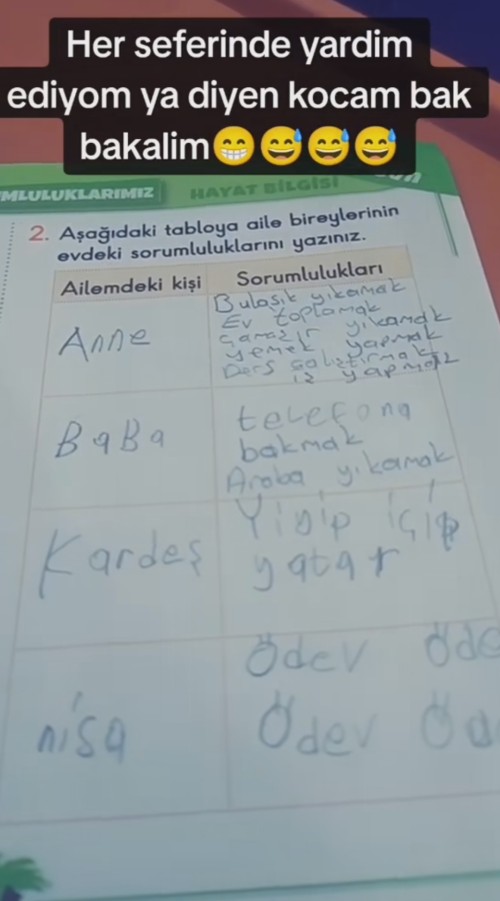 Her seferinde yardim
ediyom ya diyen kocam bak
bakalim😁😅😅😅
MLULUKLARIMIZ
HAYAT BİLGİSİ
2. Aşağıdaki tabloya aile bireylerinin
evdeki sorumluluklarını yazınız.
Ailemdeki kişi
Sorumlulukları
Anne
Bulaşık yıkamak
Ev toplamak
çamaşır yıkamak
yemek yapmak
Ders çalıştırmak
iş yapmak
BaBa
telefona
bakmak
Araba yıkamak
Kardeş
Yiyip içip
yatar
nisa
Ödev Öde
Ödev Öd